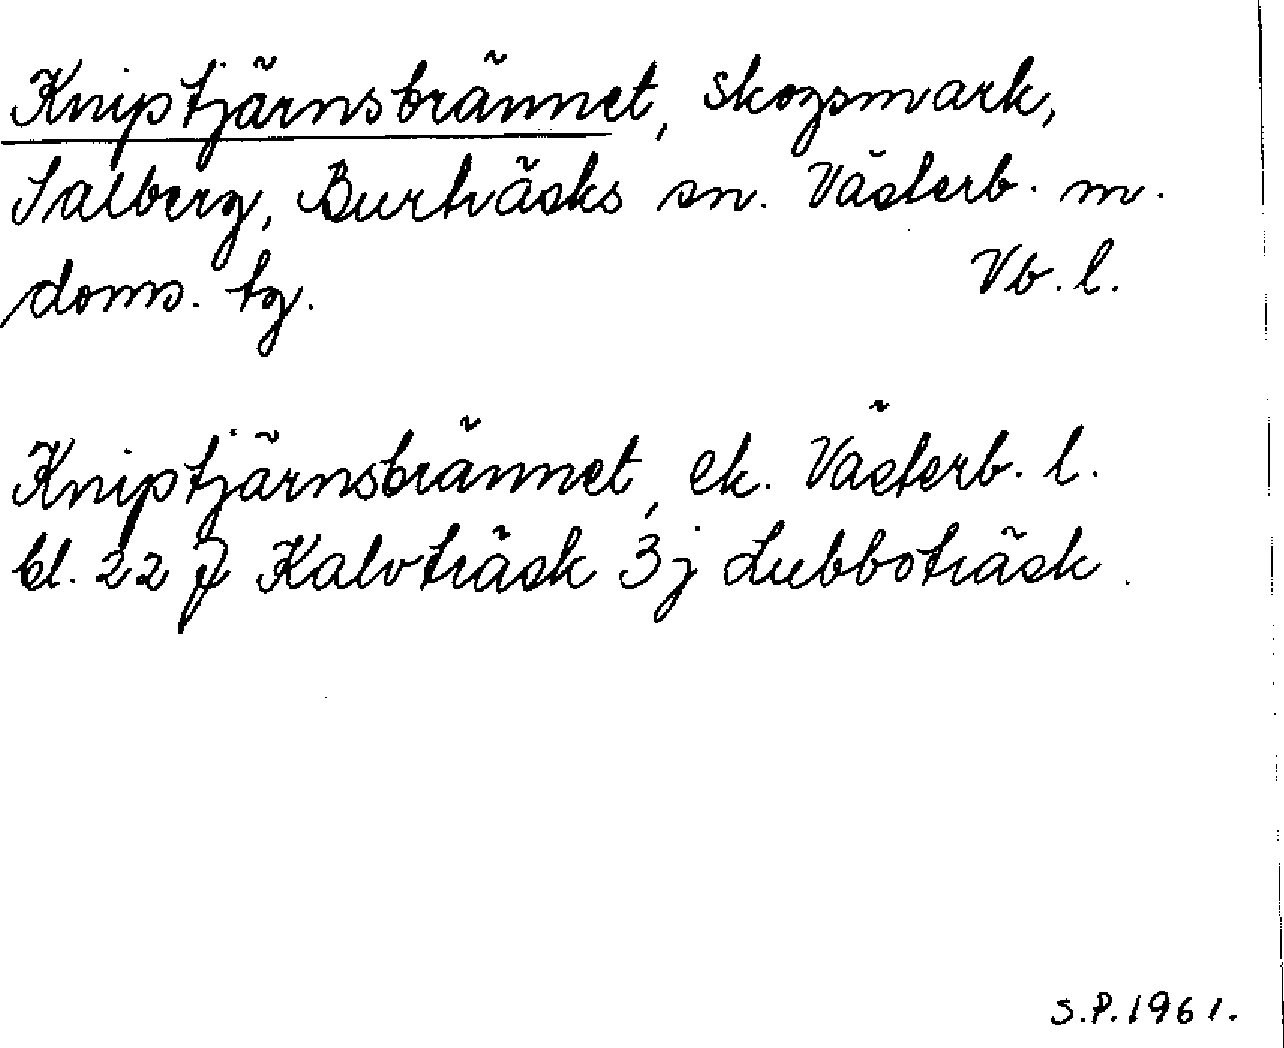 Kniptjärnsbrännet, skogsmark,
Salberg, Burträsks sn. Västerb. m.
doms. tg. Vb. l.
Kniptjärnsbrännet, ek. Västerb. l.
bl. 22 J Kalvträsk 3j Lubboträsk.
S.P. 1961.